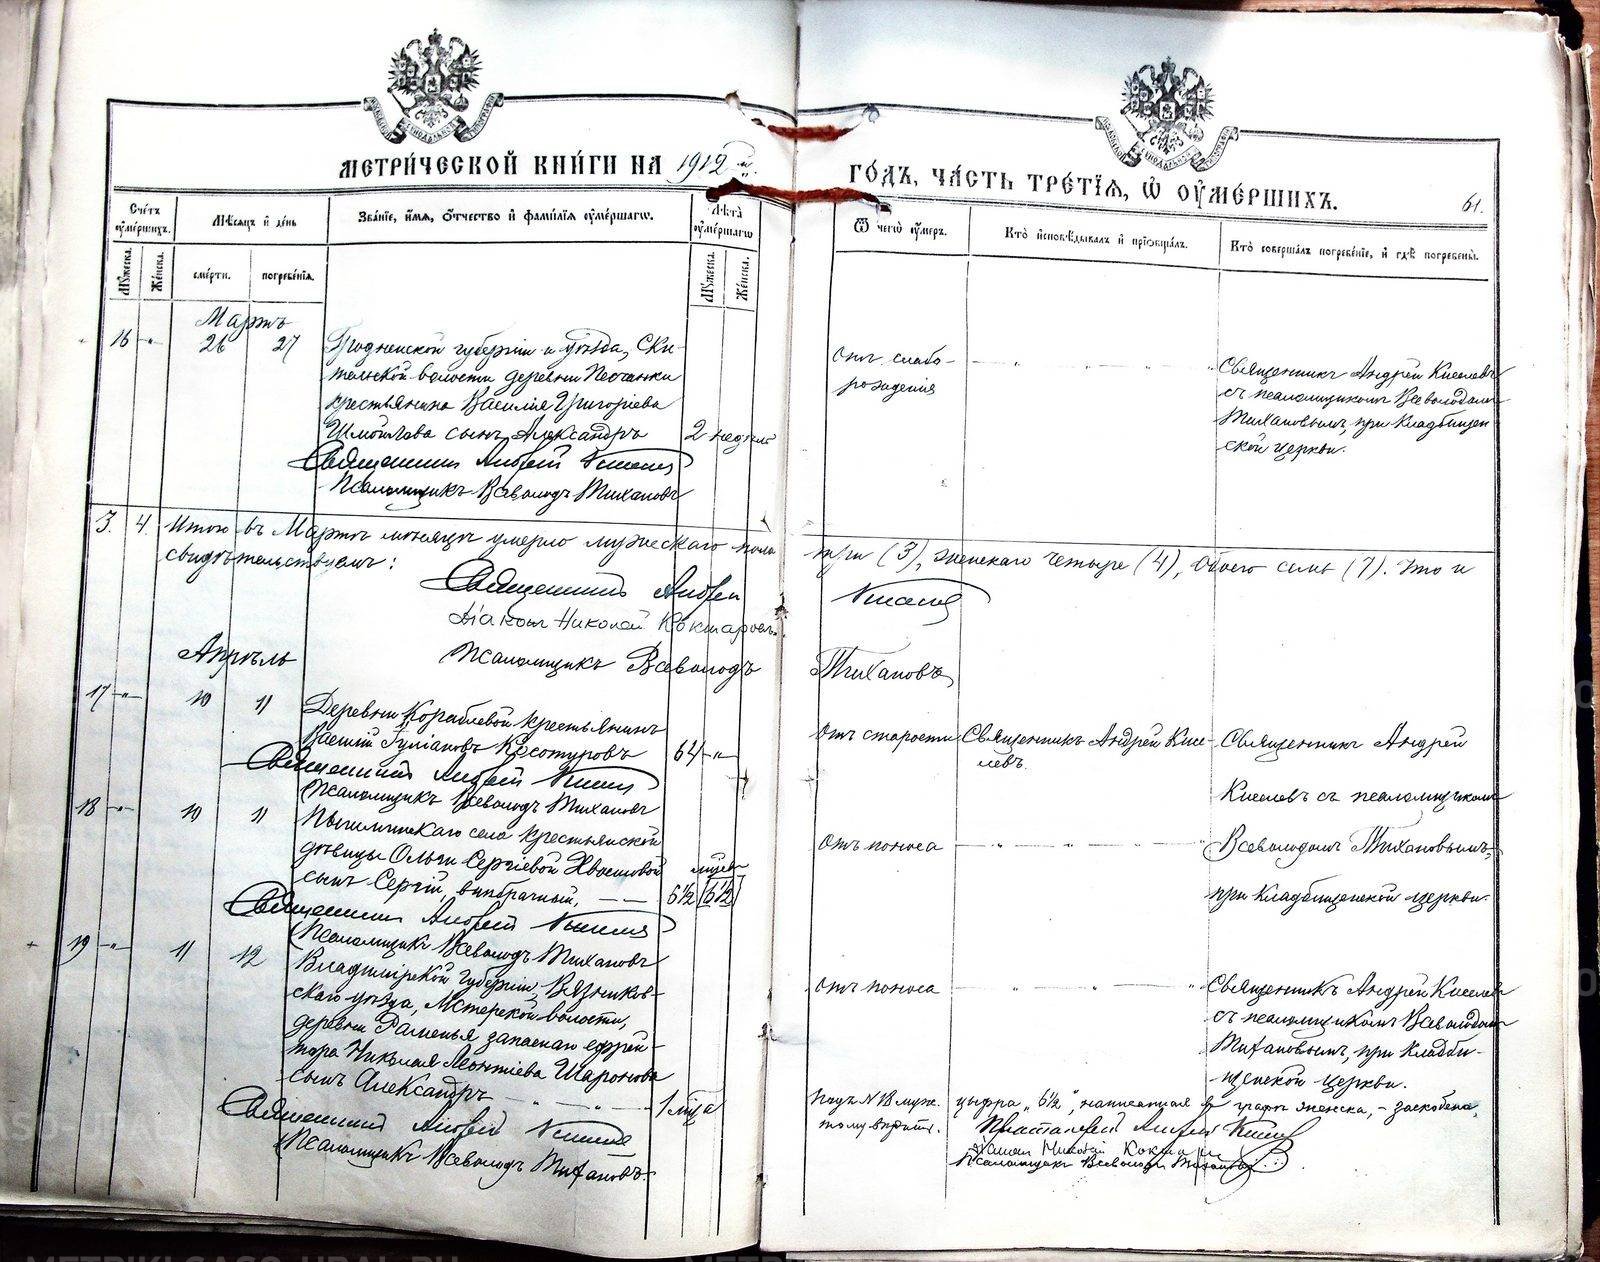 МЕТРИЧЕСКОЙ КНИГИ НА 1912 й.
Счетъ умершихъ.
Мѣсяцъ и день
Званіе, имя, отчество и фамилія умершагѡ.
Лѣта умершагѡ
Мужеска. Женска.
смерти. погребенія.
Мужеска. Женска.
Мартъ
16 " 26 27 Гродненской губерніи и уѣзда, Ски-
дельской волости деревни Песчанки
крестьянина Василія Григоріева
сынъ Александръ 2 недѣли
Священникъ Андрей Киселевъ
Псаломщикъ Всеволодъ Тихановъ
3. 4. Итого въ Мартѣ мѣсяцѣ умерло мужескаго пола
свидѣтельствуемъ:
Священникъ Андрей
Діаконъ Николай Кокшаровъ.
Апрѣль
Псаломщикъ Всеволодъ
17 " 10 11 Деревни Кораблевой крестьянинъ
Василій Косотуровъ 64 "
Священникъ Андрей Киселевъ
Псаломщикъ Всеволодъ Тихановъ
18 " 10 11 Пышминскаго села крестьянской
дѣвицы Ольги Сергіевой Хвостовой мѣсяц.
сынъ Сергій, внѣбрачный, 6½ (6½)
Священникъ Андрей Киселевъ
Псаломщикъ Всеволодъ Тихановъ
19 " 11 12 Владимірской губерніи, Вязников-
скаго уѣзда, Мстерской волости,
деревни Раменья запаснаго ефрей-
тора Николая Леонтіева Шаронова
сынъ Александръ 1 мѣсяца
Священникъ Андрей Киселевъ
Псаломщикъ Всеволодъ Тихановъ.
ГОДЪ, ЧАСТЬ ТРЕТІЯ, Ѡ ОУМЕРШИХЪ.
61.
Ѿ чегѡ умеръ.
Кто исповѣдывалъ и пріобщалъ.
Кто совершалъ погребеніе, и гдѣ погребены.
Отъ слабо-
рожденія
Священникъ Андрей Киселевъ
съ псаломщикомъ Всеволодомъ
Тихановымъ, при Кладбищен
ской церкви.
три (3), женскаго четыре (4), обоего семь (7). Что и
Киселевъ
Тихановъ
Отъ старости Священникъ Андрей Кисе-
левъ.
Священникъ Андрей
Киселевъ съ псаломщикомъ
Отъ поноса
Всеволодомъ Тихановымъ,
при Кладбищенской церкви.
Отъ поноса
Священникъ Андрей Киселевъ
съ псаломщикомъ Всеволодомъ
Тихановымъ, при Кладби-
щенской церкви.
Подъ № 18 муж. цыфра „6½", написанная въ графѣ женска, – заскоблена,
тому вѣрить.
Андрей Киселевъ
Діаконъ Николай Кокшаровъ
Псаломщикъ Всеволодъ Тихановъ